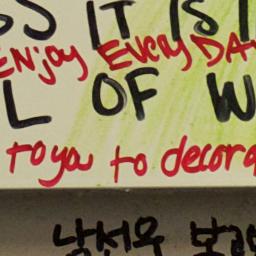 SS IT IS
ENJOY EVERY DAY
L OF W
to you to decora
낭서우 보고